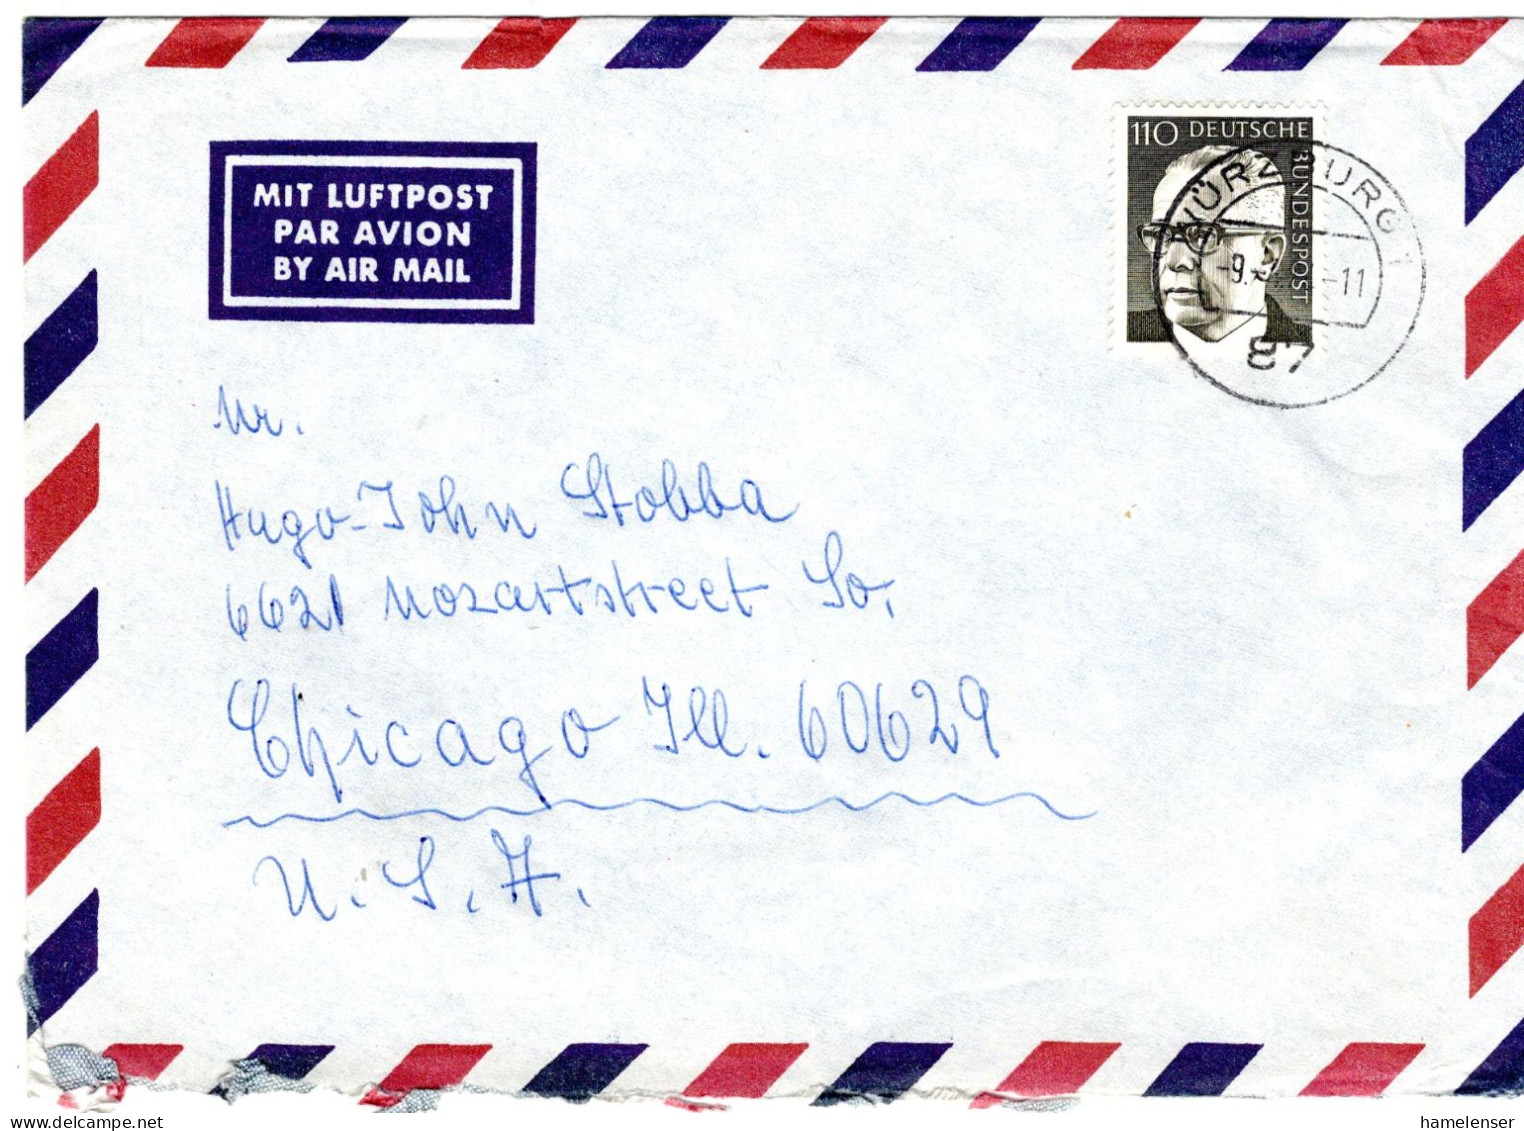 MIT LUFTPOST
PAR AVION
BY AIR MAIL
110 DEUTSCHE
BUNDESPOST
WÜRZBURG 1
-9.
-11
87
Mr.
Hugo-John Stobba
6621 Mozartstreet So.
Chicago Ill. 60629
U.S.A.
hamelenser